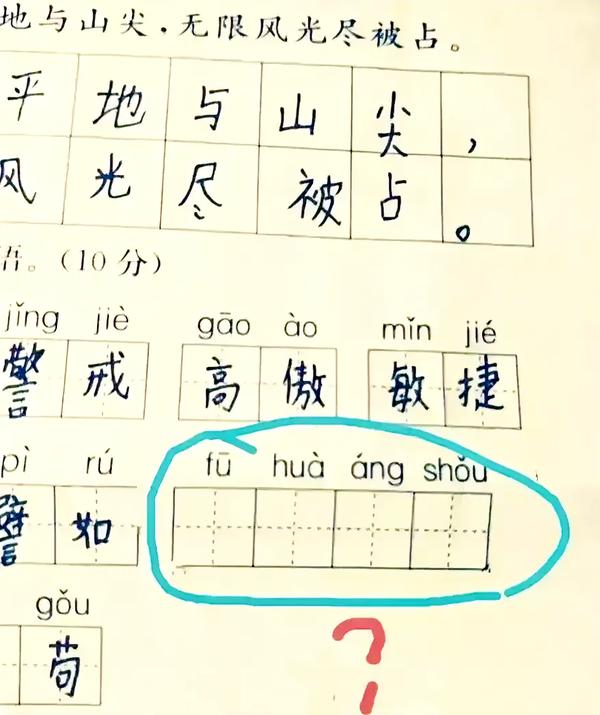 地与山尖，无限风光尽被占。
平地与山尖，
风光尽被占。
语。（10 分）
jǐng jiè gāo ào mǐn jié
警戒 高傲 敏捷
pì rú fū huà áng shǒu
譬如
gǒu
苟
?